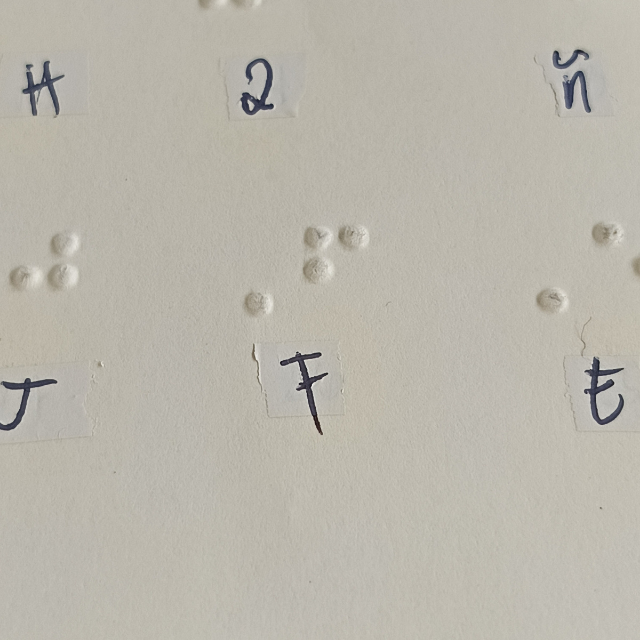 H 2 ñ
J F E